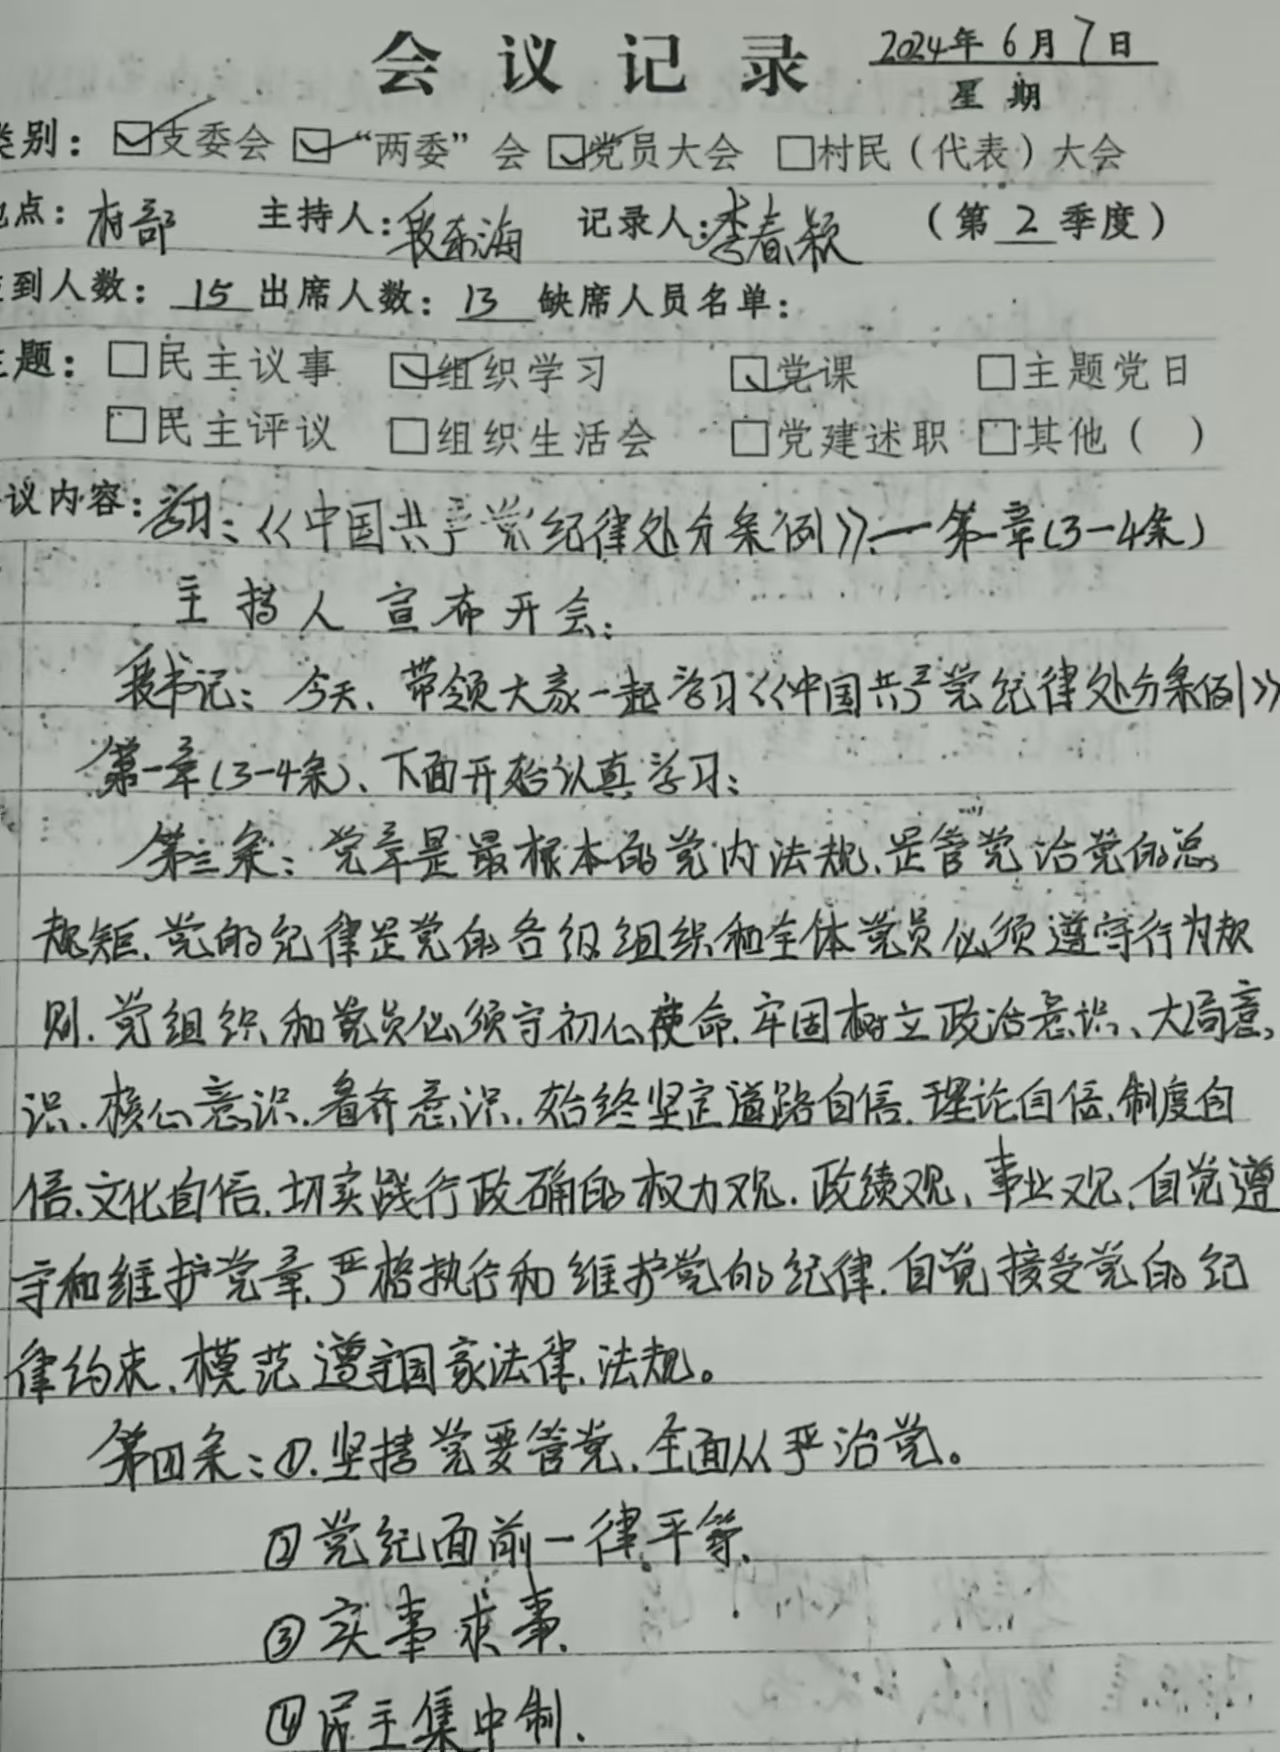 会议记录 2024年6月7日
星期
类别：☑支委会 ☑“两委”会 ☑党员大会 □村民（代表）大会
地点：村部 主持人：段东海 记录人：李春颖 （第2季度）
应到人数：15 出席人数：13 缺席人员名单：
主题：□民主议事 ☑组织学习 ☑党课 □主题党日
□民主评议 □组织生活会 □党建述职 □其他（ ）
会议内容：学习：《中国共产党纪律处分条例》：一第一章（3-4条）
主持人宣布开会：
段书记：今天、带领大家一起学习《中国共产党纪律处分条例》
第一章（3-4条）、下面开始认真学习：
第三条：党章是最根本的党内法规、是管党治党的总
规矩、党的纪律是党的各级组织和全体党员必须遵守行为规
则、党组织和党员必须守初心使命、牢固树立政治意识、大局意
识、核心意识、看齐意识、始终坚定道路自信、理论自信、制度自
信、文化自信、切实践行政确的权力观、政绩观、事业观、自觉遵
守和维护党章、严格执行和维护党的纪律、自觉接受党的纪
律约束、模范遵守国家法律、法规。
第四条：①、坚持党要管党、全面从严治党。
②党纪面前一律平等、
③实事求事、
④民主集中制、